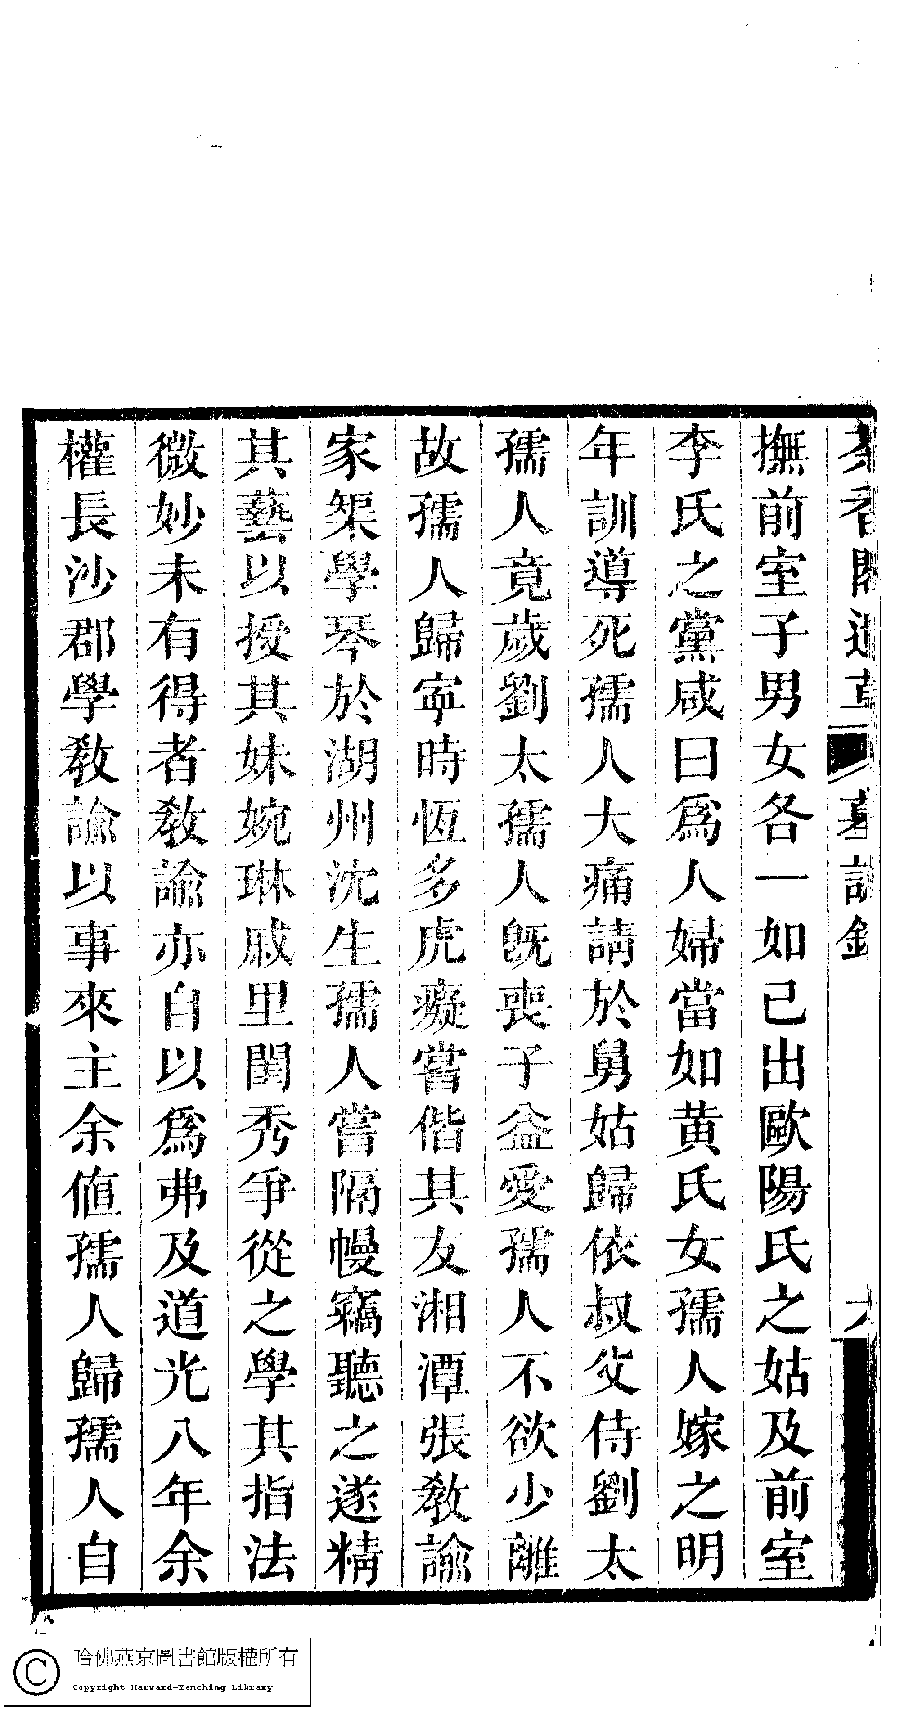 撫前室子男女各一如己出歐陽氏之姑及前室
李氏之黨咸曰爲人婦當如黃氏女孺人嫁之明
年訓導死孺人大痛請於舅姑歸依叔父侍劉太
孺人竟歲劉太孺人旣喪子益愛孺人不欲少離
故孺人歸寧時恆多虎癡嘗偕其友湘潭張敎諭
家榘學琴於湖州沈生孺人嘗隔幔竊聽之遂精
其藝以授其妹婉琳戚里閨秀爭從之學其指法
微妙未有得者敎諭亦自以爲弗及道光八年余
權長沙郡學敎諭以事來主余値孺人歸孺人自
哈佛燕京圖書館版權所有
Copyright Harvard-Yenching Library